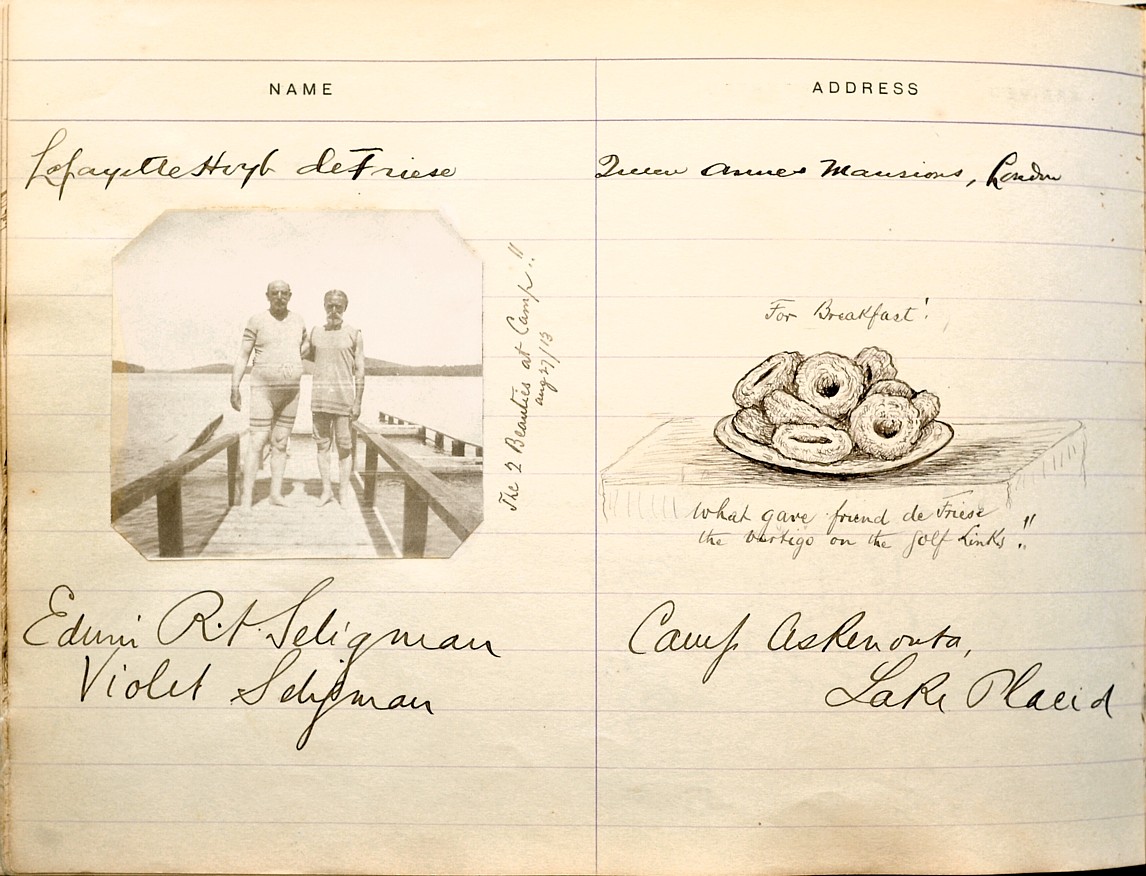 NAME
ADDRESS
Lafayette Hoyt de Friese
Queen Annes Mansions, London
The 2 Beauties at Camp!!
aug 27/13
For Breakfast!
What gave friend de Friese
the vertigo on the golf Links!!
Edwin R. A. Seligman
Camp Askenonta,
Violet Seligman
Lake Placid